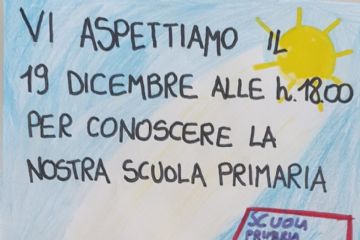 VI ASPETTIAMO IL
19 DICEMBRE ALLE h.18.00
PER CONOSCERE LA
NOSTRA SCUOLA PRIMARIA
SCUOLA
PRIMARIA